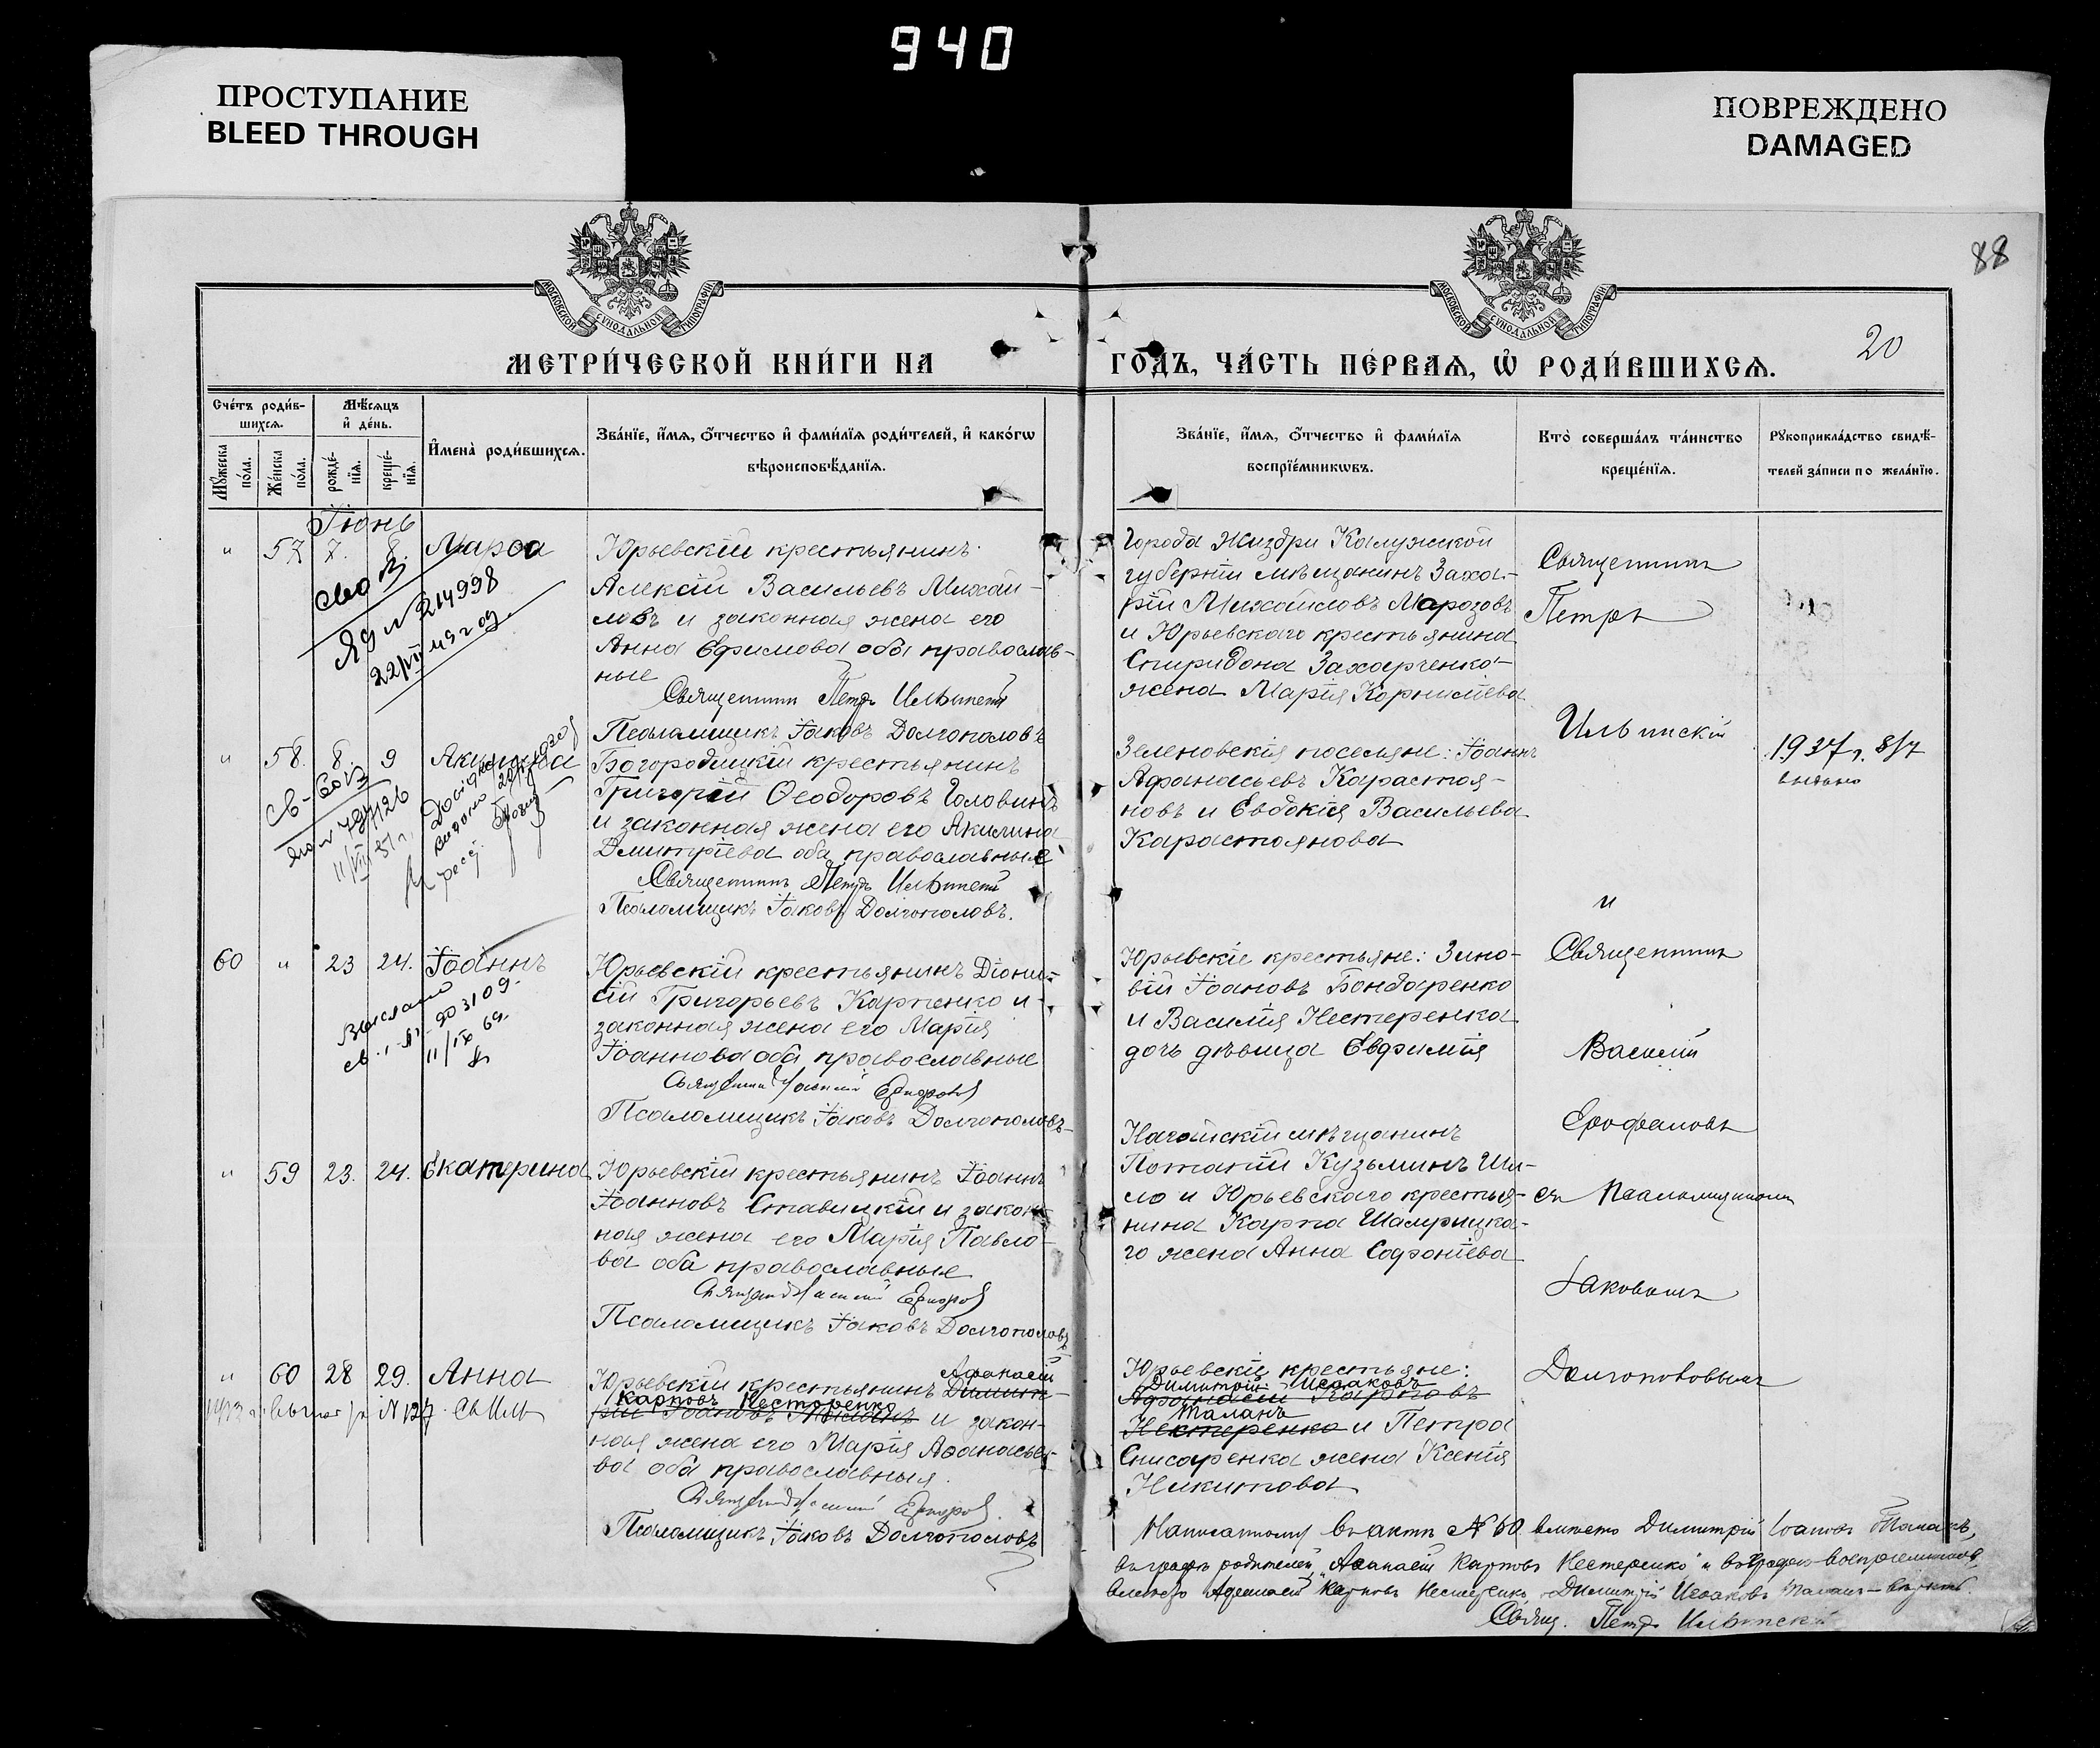 940
ПРОСТУПАНИЕ
BLEED THROUGH
ПОВРЕЖДЕНО
DAMAGED
88
МОСКОВСКОЙ СѴНОДАЛЬНОЙ ТИПОГРАФІИ
МОСКОВСКОЙ СѴНОДАЛЬНОЙ ТИПОГРАФІИ
20
МЕТРИ́ЧЕСКОЙ КНИ́ГИ НА
ГОДЪ, ЧА́СТЬ ПЕ́РВАѦ, Ѡ҆ РОДИ́ВШИХСѦ.
Сче́тъ роди́в-
шихсѧ.
Мꙋ́жеска по́ла.
Же́нска по́ла.
Мѣ́сѧцъ
и҆ де́нь.
рожде́-
нїѧ.
креще́-
нїѧ.
И҆мена̀ роди́вшихсѧ.
Зва́нїе, и҆́мѧ, ѻ҆́тчество и҆ фами́лїѧ роди́телей, и҆ како́гѡ
вѣроисповѣ́данїѧ.
Зва́нїе, и҆́мѧ, ѻ҆́тчество и҆ фами́лїѧ
воспрїе́мникѡвъ.
Кто̀ соверша́лъ та́инство
креще́нїѧ.
Рꙋкоприкла́дство свидѣ́-
телей за́писи по жела́нїю.
Іюнь
" 57 7. 8. Марѳа
22/VII 49 год
Юрьевскій крестьянинъ
Алексій Васильевъ Михай-
ловъ и законная жена его
Анна Ефимова оба православ-
ные
Священникъ Петръ Ильинскій
Псаломщикъ Іаковъ Долгополовъ
Города Жиздри Калужской
губерніи мѣщанинъ Заха-
рій Михайловъ Марозовъ
и Юрьевскаго крестьянина
Спиридона Захарченко-
жена Марія Корнилiева
Священникъ
Петръ
Ильинскій
" 58. 8. 9 Акилина
Богородицкій крестьянинъ
Григорій Ѳеодоровъ Головинъ
и законная жена его Акилина
Димитріева оба православные
Священникъ Петръ Ильинскій
Псаломщикъ Іаковъ Долгополовъ.
Зеленовскія поселяне: Іоаннъ
Афанасьевъ Карастоя-
новъ и Евдокія Васильева
Карастоянова
1937 г. 8/7
выдано
и
60 " 23 24. Іоаннъ
Выслано
св. 903109.
11/IX 69.
Юрьевскій крестьянинъ Діони-
сій Григорьевъ Карпенко и
законная жена его Марія
Іоаннова оба православные
Священникъ Василій Ерофаловъ
Псаломщикъ Іаковъ Долгополовъ
Юрьевскіе крестьяне: Зино-
вій Іоановъ Бондаренко
и Василія Нестеренка
дочь дѣвица Евфимія
Священникъ
Василій
Ерофаловъ
" 59 23. 24. Екатерина
Юрьевскій крестьянинъ Іоаннъ
Іоанновъ Ставицкій и закон-
ная жена его Марія Павло-
ва оба православные
Псаломщикъ Іаковъ Долгополовъ
Нагайскій мѣщанинъ
Потапій Кузьминъ Ши-
ло и Юрьевскаго крестья-
нина Карпа Шамрицка-
го жена Анна Софоніева
съ Псаломщикомъ
Іаковомъ
Долгополовымъ
" 60 28 29. Анна
Аѳанасій
Юрьевскій крестьянинъ Димит-
Карповъ Нестеренко
рій Іоановъ Таланъ и закон-
ная жена его Марія Аѳанасье-
ва оба православныя.
Псаломщикъ Іаковъ Долгополовъ
Юрьевскіе крестьяне:
Димитрій Исааковъ
Афанасій Карповъ
Таланъ
Нестеренко и Петра
Снисаренка жена Ксенія
Никитова
Написанному въ актѣ № 60 вмѣсто Димитрій Іоановъ Таланъ,
въ графѣ родителей „Аѳанасій Карповъ Нестеренко" и въ графѣ воспріемниковъ
вмѣсто Афанасій Карповъ Нестеренко Димитрій Исааковъ Таланъ — вѣрить.
Свящ. Петръ Ильинскій